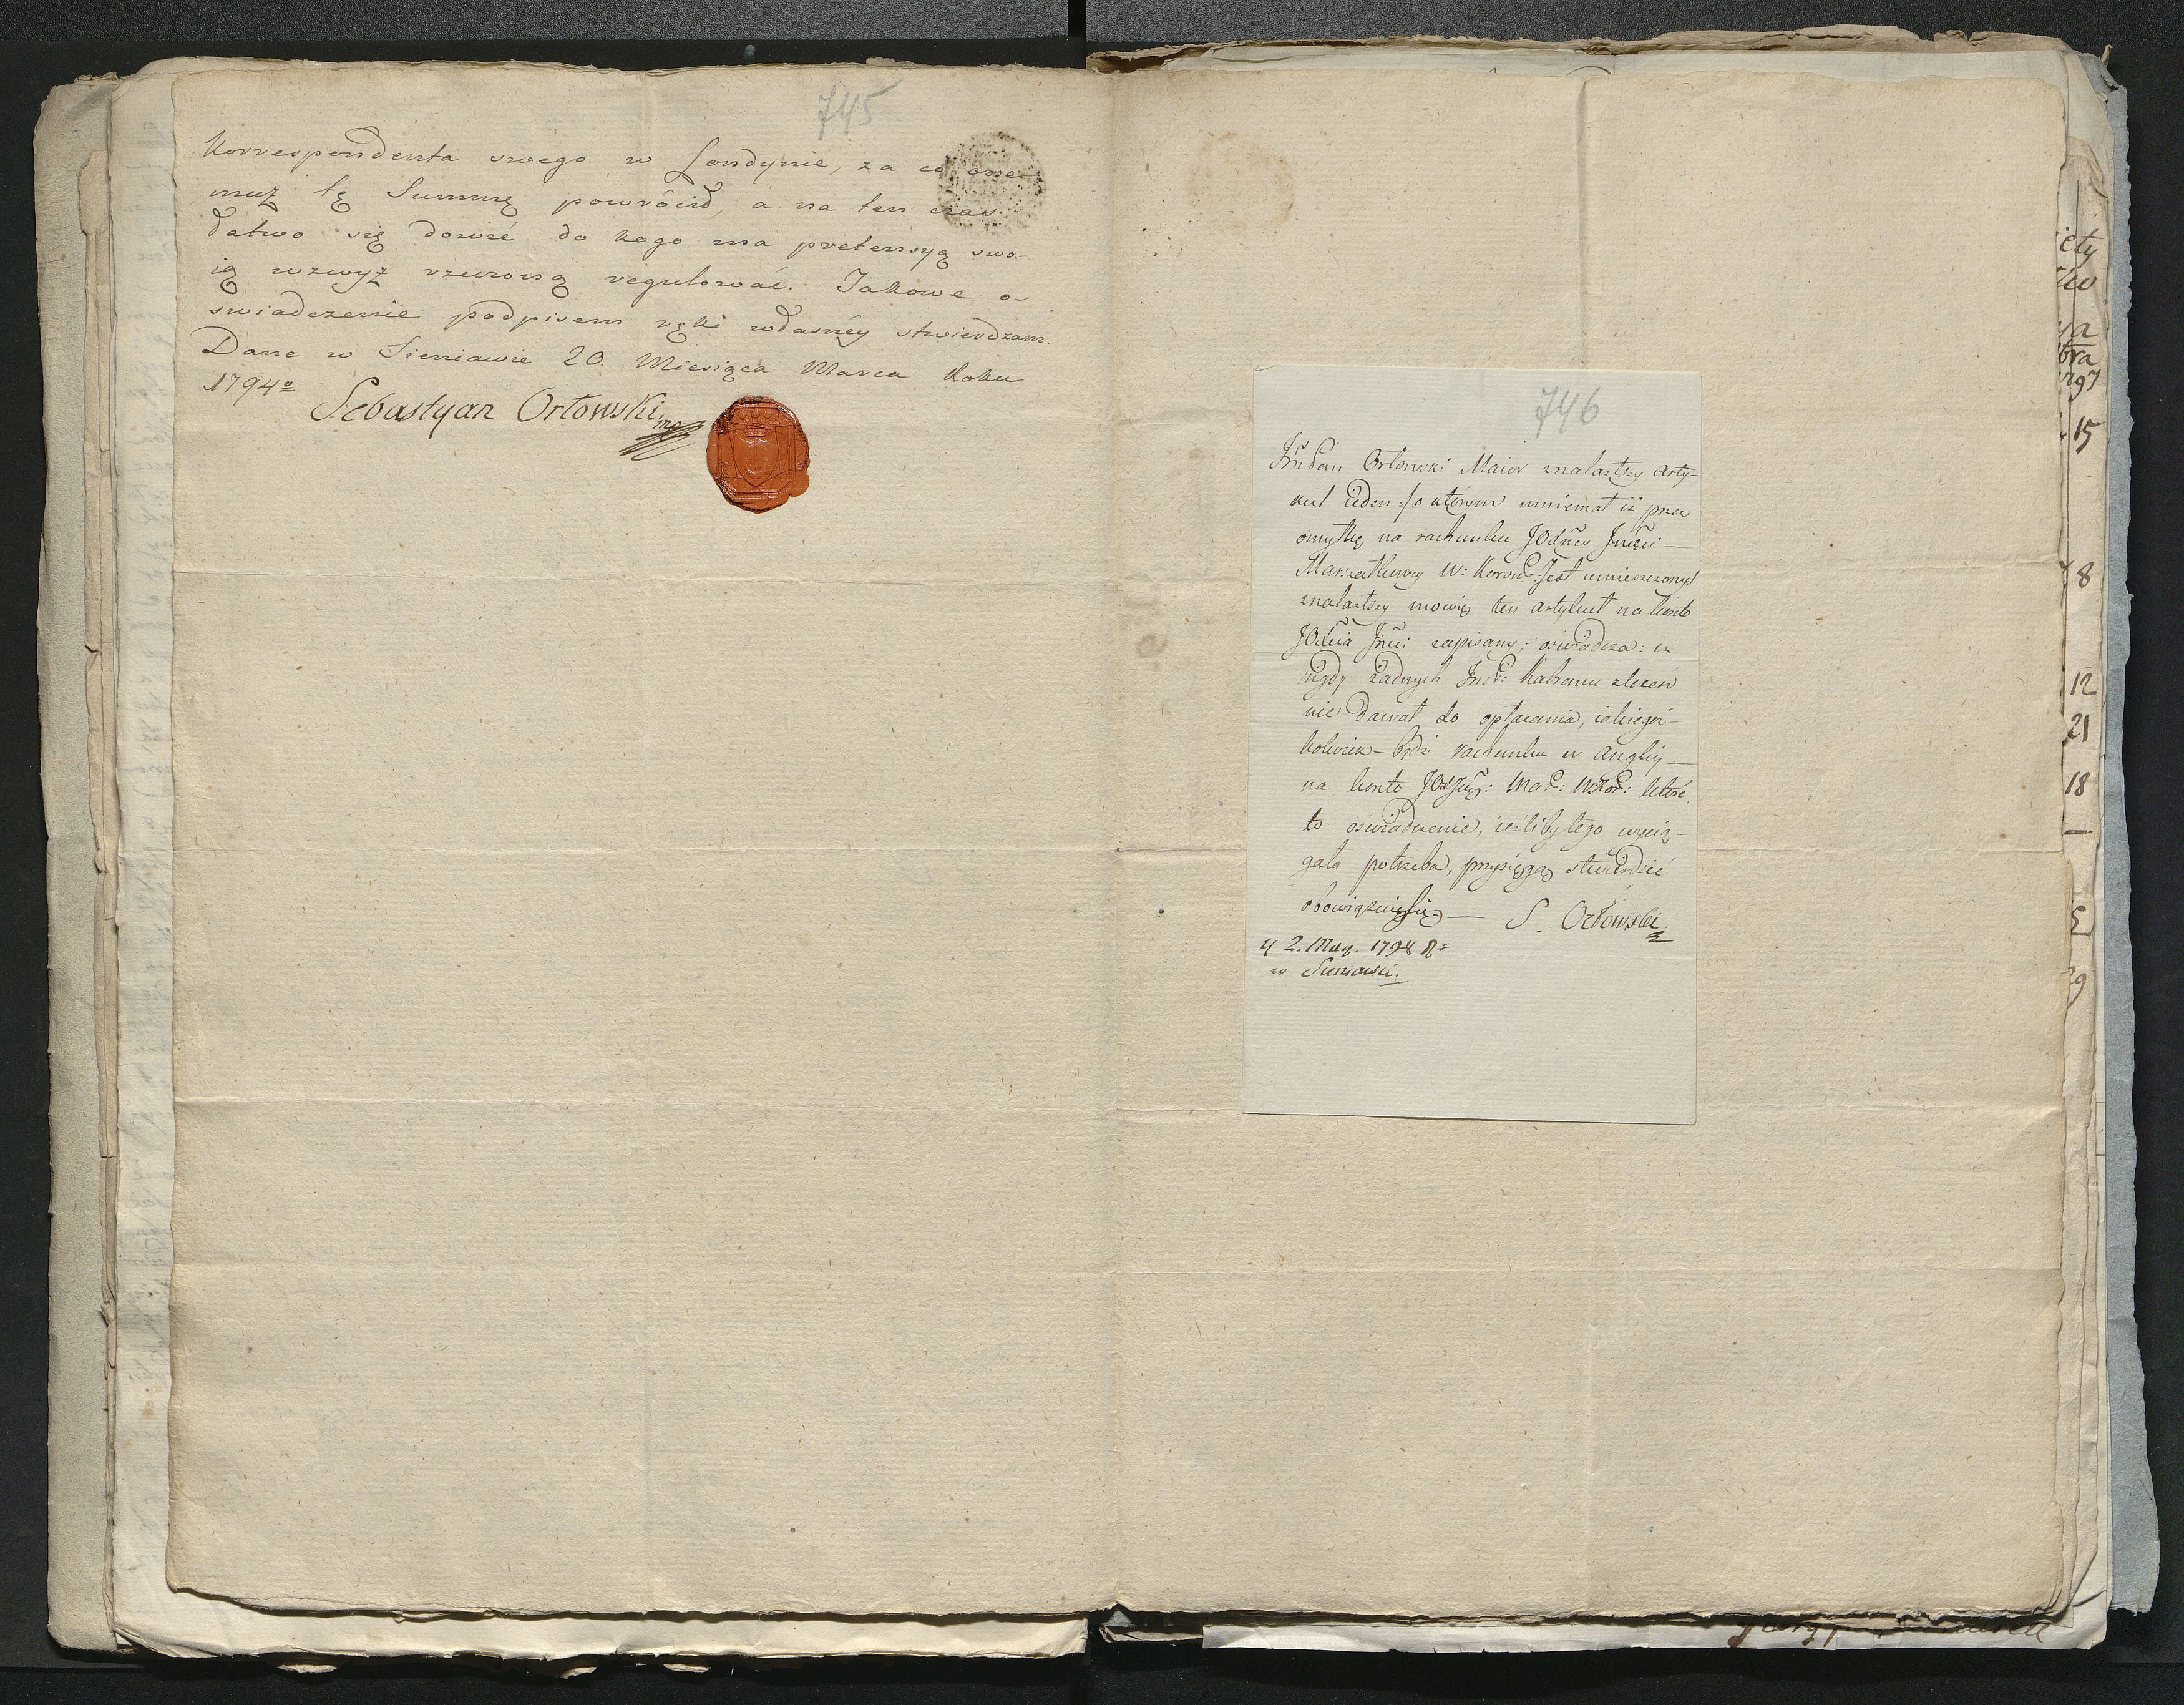 745
Korrespondenta swego w Londynie, za co one-
muż tę Summę powrócił, a na ten czas
łatwo się dowié do kogo ma pretensyą swo-
ią wzwyż rzeczoną regulować. Jakowe o-
swiadczenie podpisem ręki własnéy stwierdzam.
Dane w Sieniawie 20. Miesiąca Marca Roku
1794º
Sebastyan Orłowski mp
746
Orłowski Maior znalazłszy arty-
kuł ieden :/o którym mniemał iż przez
omyłkę na rachunku JOXney Jmści
Marszałkowy W: Koronͫ: Jest umieszczonył
znalazłszy mowię ten artykuł na konto
JOXcia Jmci zapisany; oświadcza: iż
nigdy żadnych Kabremu zleceń
nie dawał do opłacenia, iakiegoź-
kolwiek-bądź rachunku w Anglij
na konto które
to oswiadczenie, ieźliby tego wycią-
gała potrzeba, przysięgą stwierdzić
obowiązuię się — S. Orłowski
2. May. 1794 R=
w Sieniawie.
ięty
bra
15
8
12
21
18
5